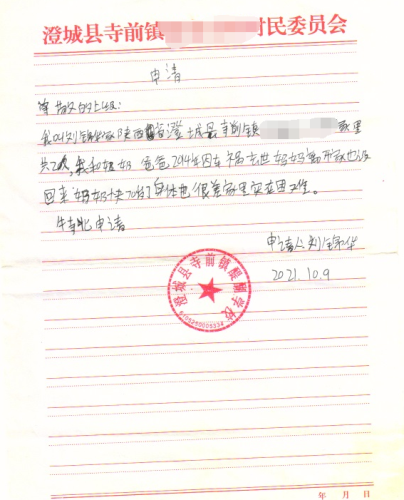 澄城县寺前镇 村民委员会
申请
尊敬的上级:
我叫刘锦华家陕西省澄城县寺前镇 家里
共2人,我和奶奶 爸爸2014年因车祸去世妈妈离开家也没
回来 奶奶快70的身体也很差家里实在困难。
特此申请
申请人刘锦华
2021.10.9
澄城县寺前镇醍醐学校
年 月 日